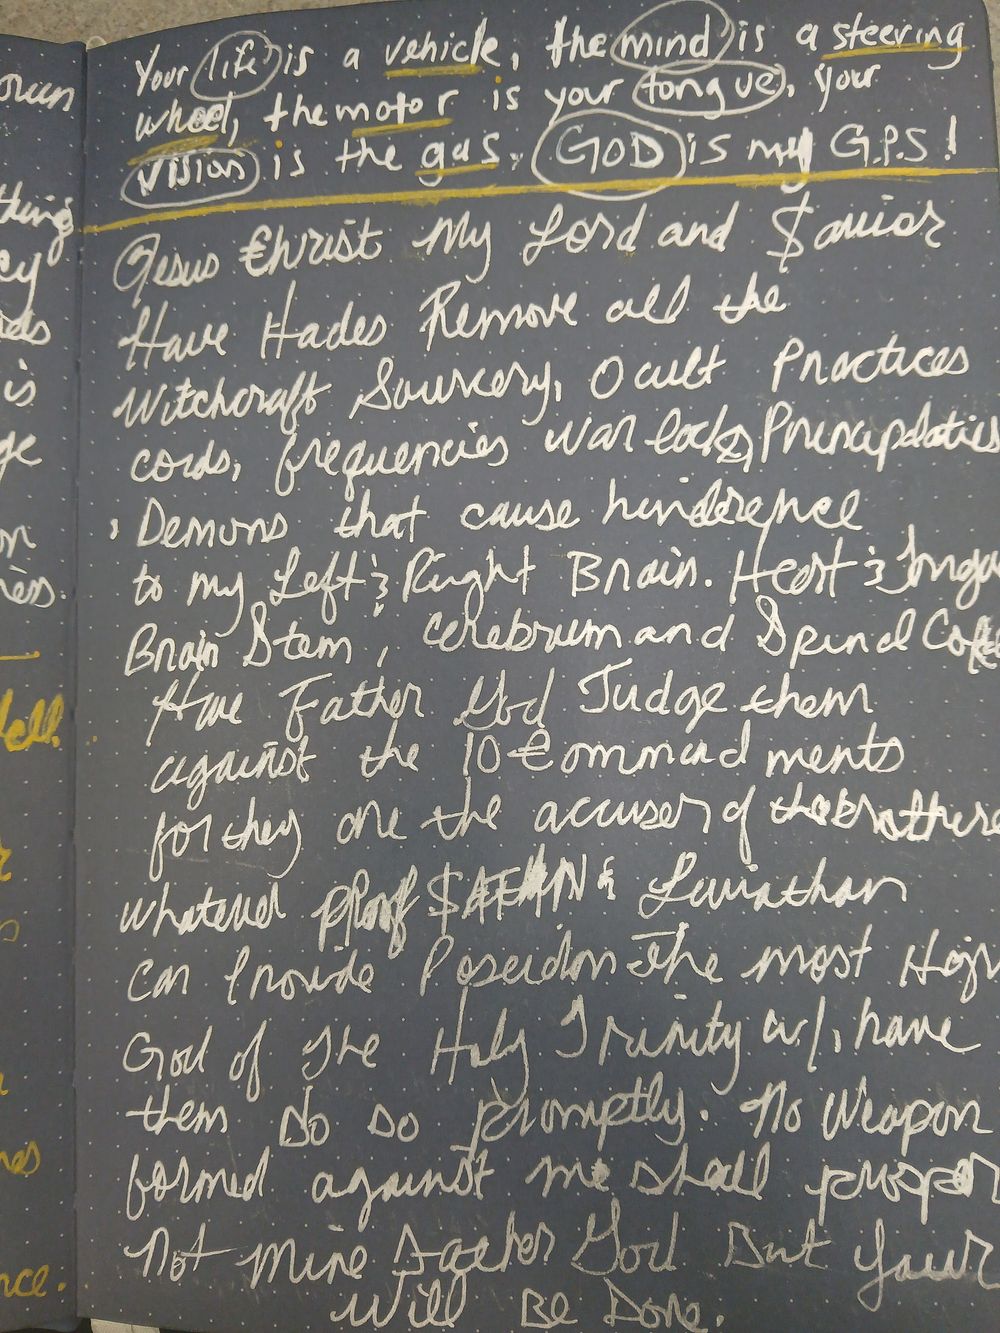 Your life is a vehicle, the mind is a steering
wheel, the motor is your tongue, your
vision is the gas. GOD is my G.P.S!
Jesus Christ My Lord and Savior
Have Hades Remove all the
Witchcraft Sourcery, Ocult Practices
cords, frequencies warlocks, Principalaties
, Demons that cause hinderence
to my Left & Right Brain. Heart &
Brain Stem, cerebrum and Spinal
Have Father God Judge them
against the 10 Commandments
for they are the accuser of the brothere
whatever proof SATAN & Leviathan
can Provide Poseidon The most High
God of The Holy Trinity w/, have
them do so promptly. No Weapon
formed against me shall prosper
Not Mine Father God But Your
Will Be Done.
oun
thing
cy
ds
is
ge
on
ies.
ell.
r
s
n
nes
nce.